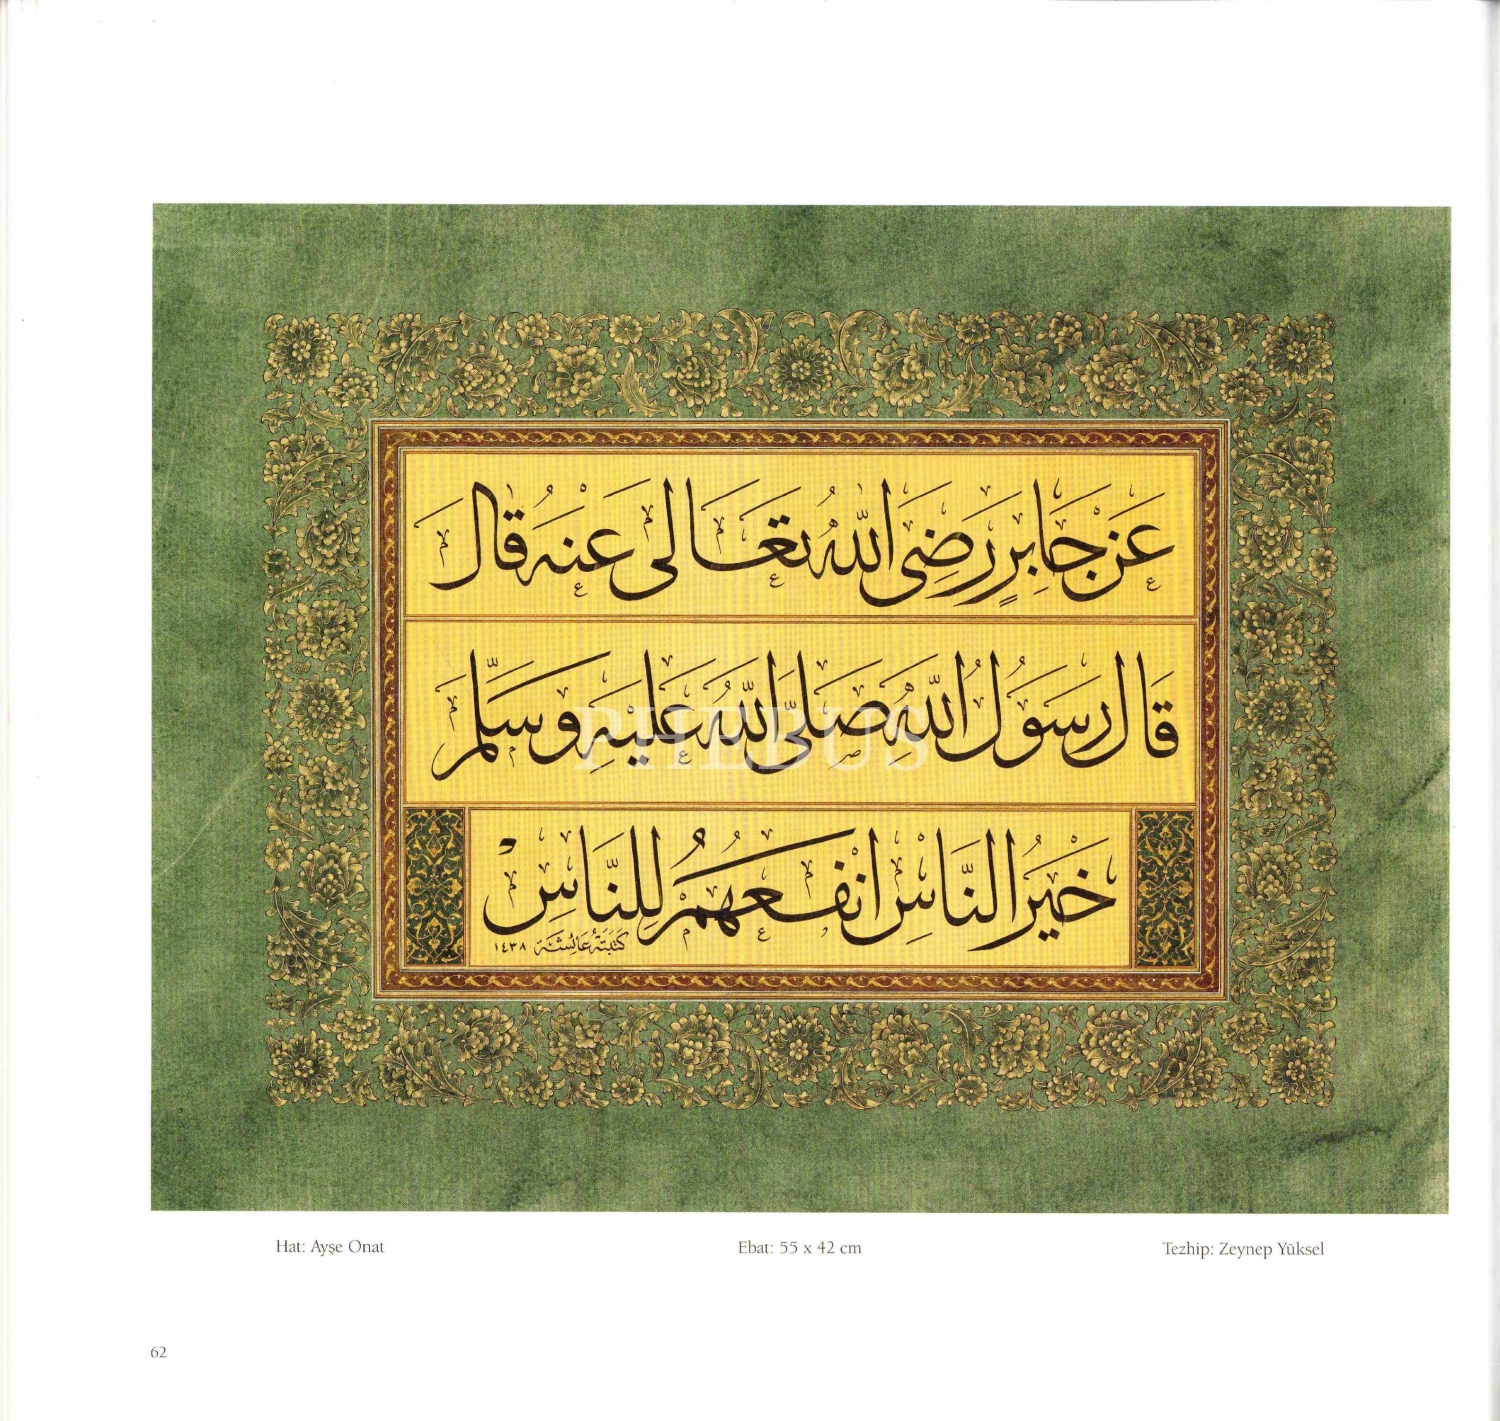 عَنْ جَابِرٍ رَضِىَ اللّٰهُ تَعَالٰى عَنْهُ قَالَ
قَالَ رَسُولُ اللّٰهِ صَلَّى اللّٰهُ عَلَيْهِ وَسَلَّمَ
خَيْرُ النَّاسِ اَنْفَعُهُمْ لِلنَّاسِ
كتبته عائشة ١٤٣٨
PHEBUS
Hat: Ayşe Onat
Ebat: 55 x 42 cm
Tezhip: Zeynep Yüksel
62